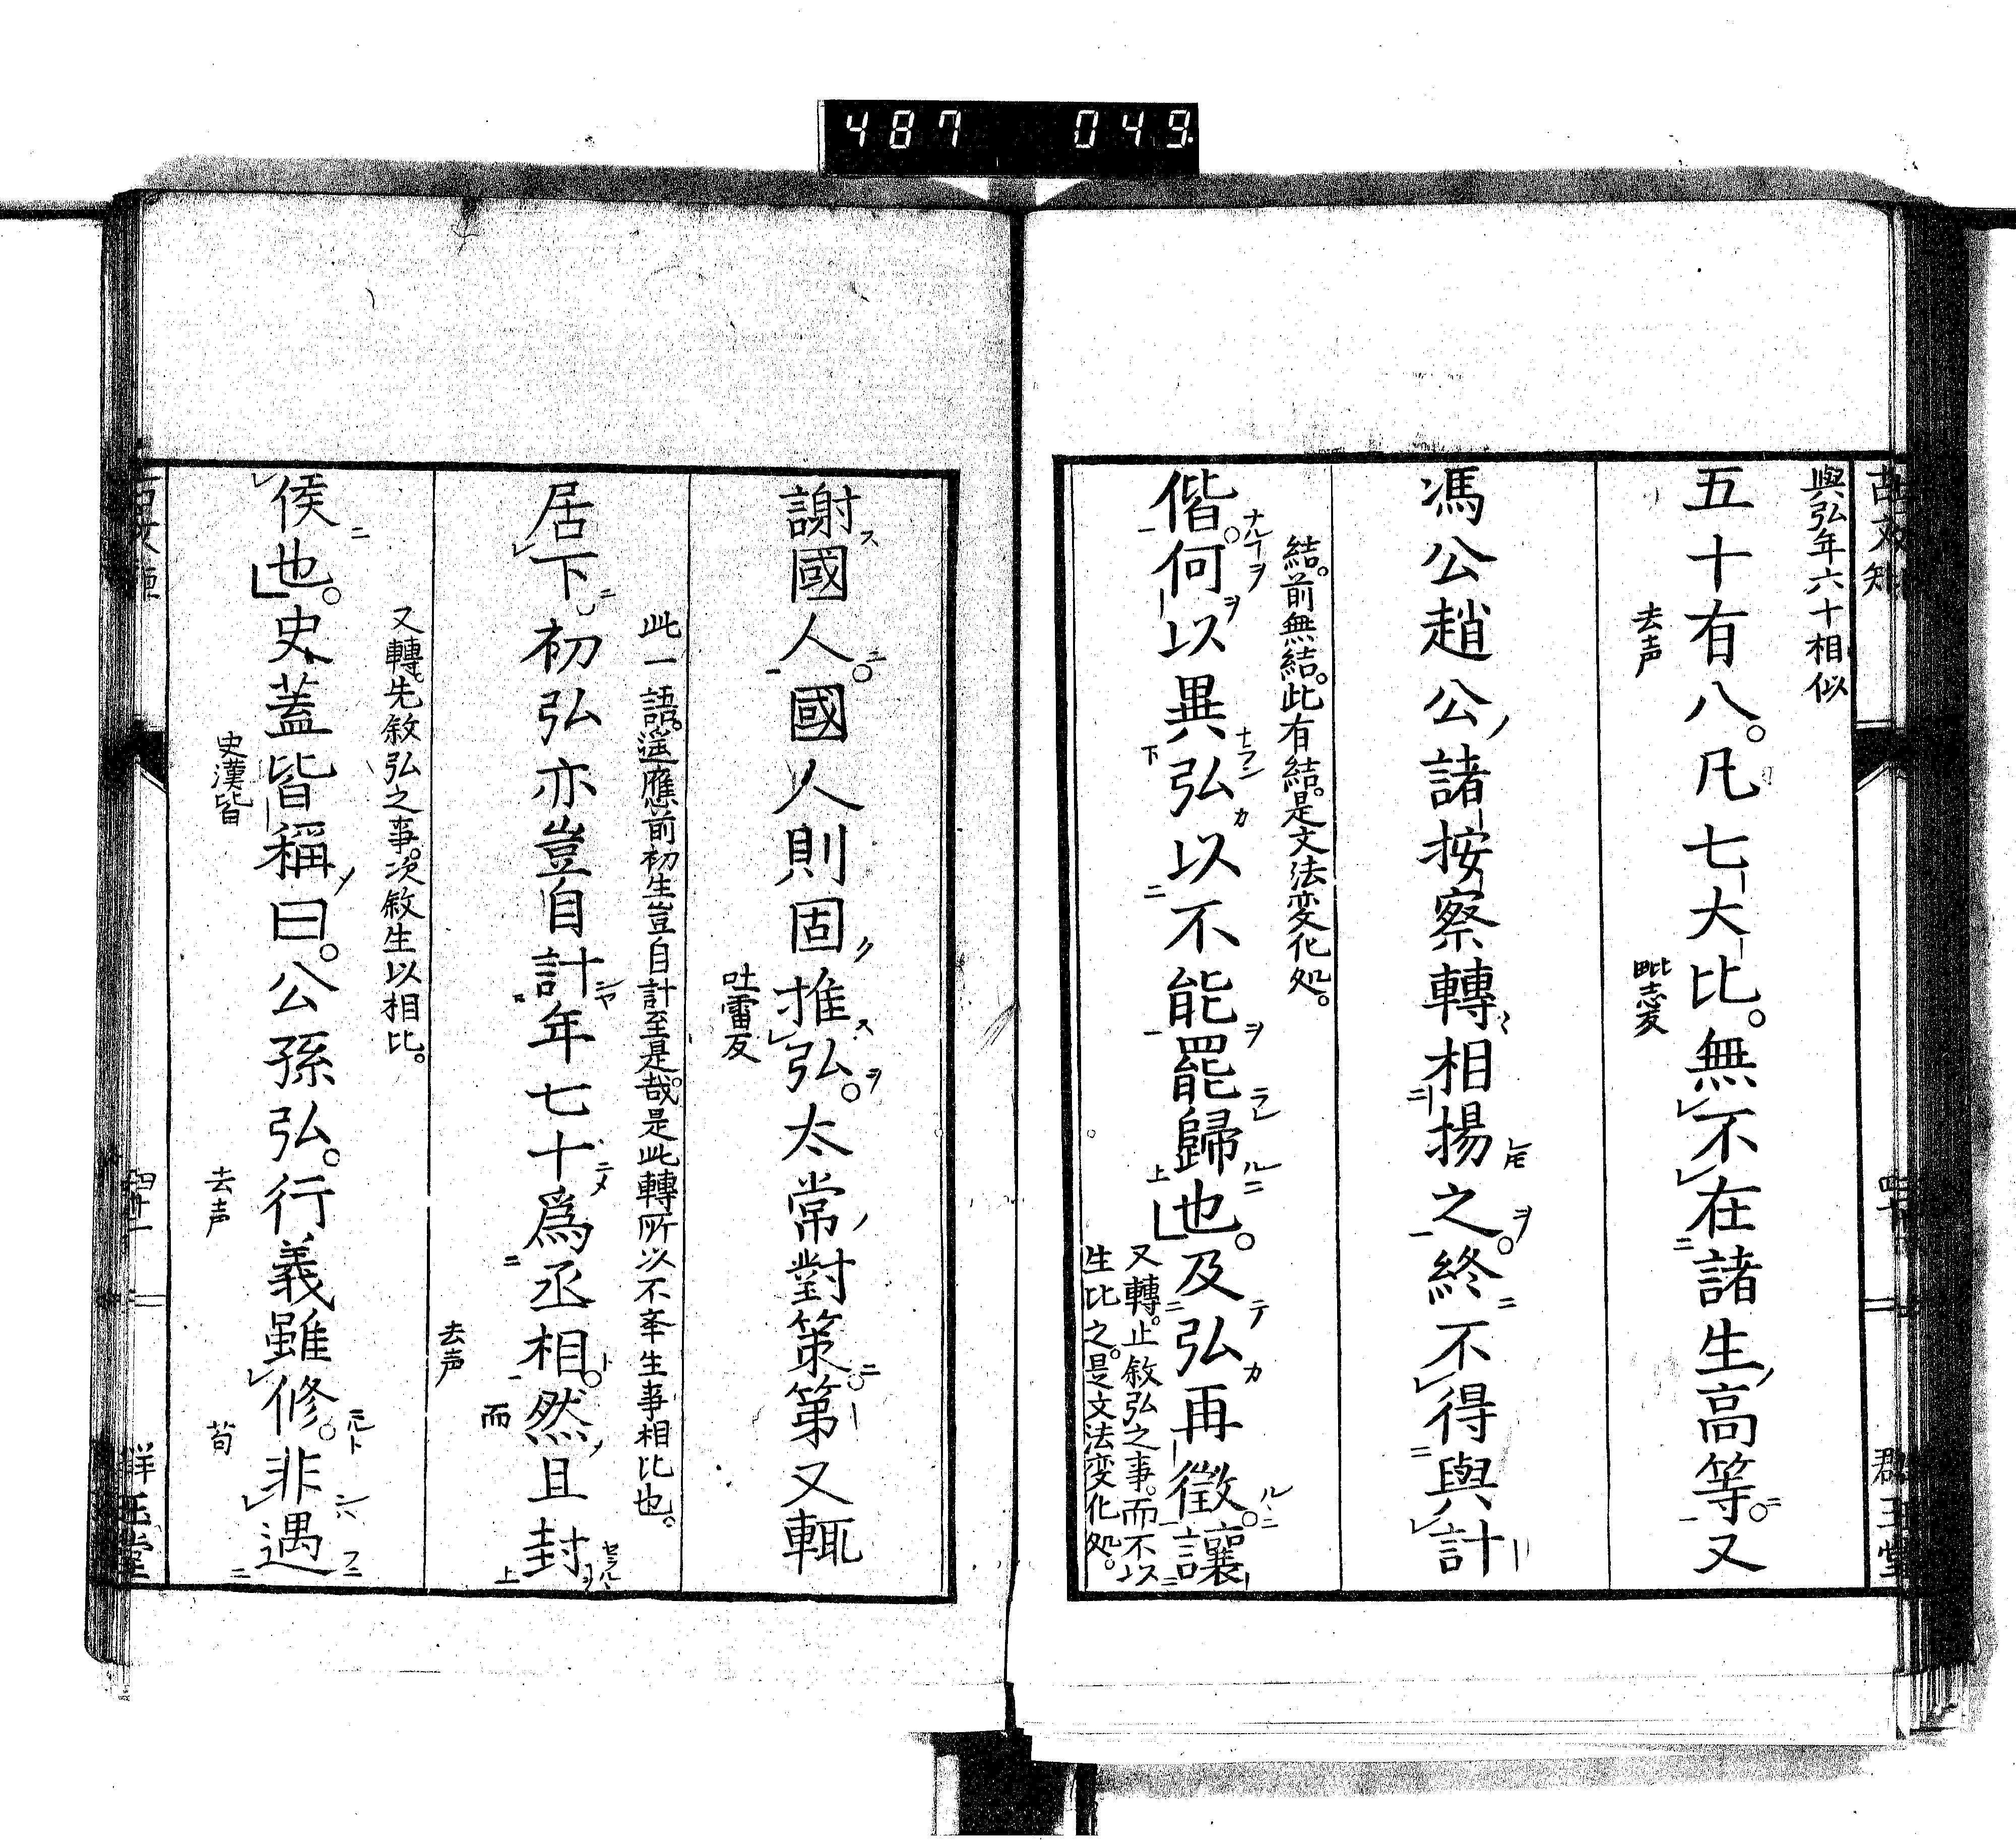 487 049
與弘年六十相似
五十有八。凡七大比。無不在諸生高等。又
去声
毗志反
馮公趙公諸按察轉相揚之。終不得與計
結。前無結。此有結。是文法変化処。
偕。何以異弘以不能罷歸也。及弘再徵。讓
又轉。止敘弘之事。而不以
生比之。是文法変化処。
群玉堂
謝國人。國人則固推弘。太常對策。第又輒
吐雷反
此一語。遥應前初生豈自計至是哉。是此轉所以不牽生事相比也。
居下。初弘亦豈自計年七十爲丞相。然且封
去声
而
又轉。先敘弘之事。次敘生以相比。
侯也。史蓋皆稱曰。公孫弘。行義雖修。非遇
史漢皆
去声
苟